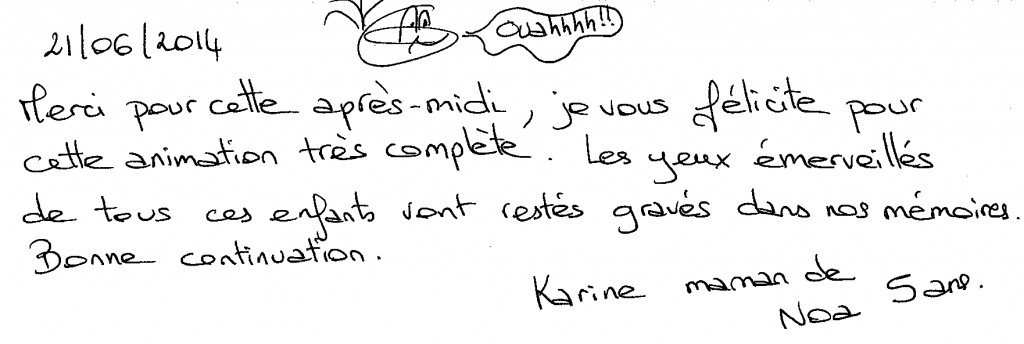 Ouahhhh!!
21/06/2014
Merci pour cette après-midi, je vous félicite pour
cette animation très complète. Les yeux émerveillés
de tous ces enfants sont restés gravés dans nos mémoires.
Bonne continuation.
Karine maman de
Noa 5 ans.